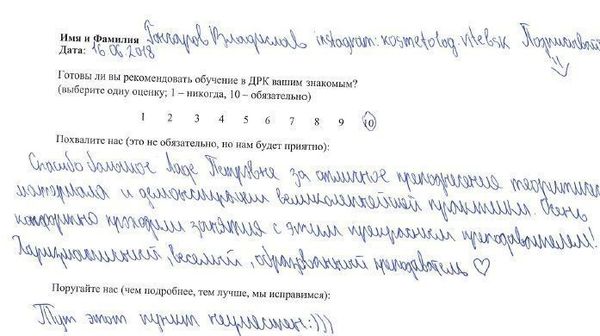 Имя и Фамилия Гончаров Владислав instagram: kosmetolog.vitebsk Подписывай
Дата: 16.06.2018
Готовы ли вы рекомендовать обучение в ДРК вашим знакомым?
(выберите одну оценку; 1 – никогда, 10 – обязательно)
1 2 3 4 5 6 7 8 9 10
Похвалите нас (это не обязательно, но нам будет приятно):
Спасибо большое Ладе Петровне за отличное преподнесение теоритич
материала и демонстрации великолепнейшей практики. Очень
комфортно проходили занятия с этим прекрасным преподавателем!
Харизматичный, веселый, образованный преподаватель ♡
Поругайте нас (чем подробнее, тем лучше, мы исправимся):
Тут этот пункт неуместен :)))